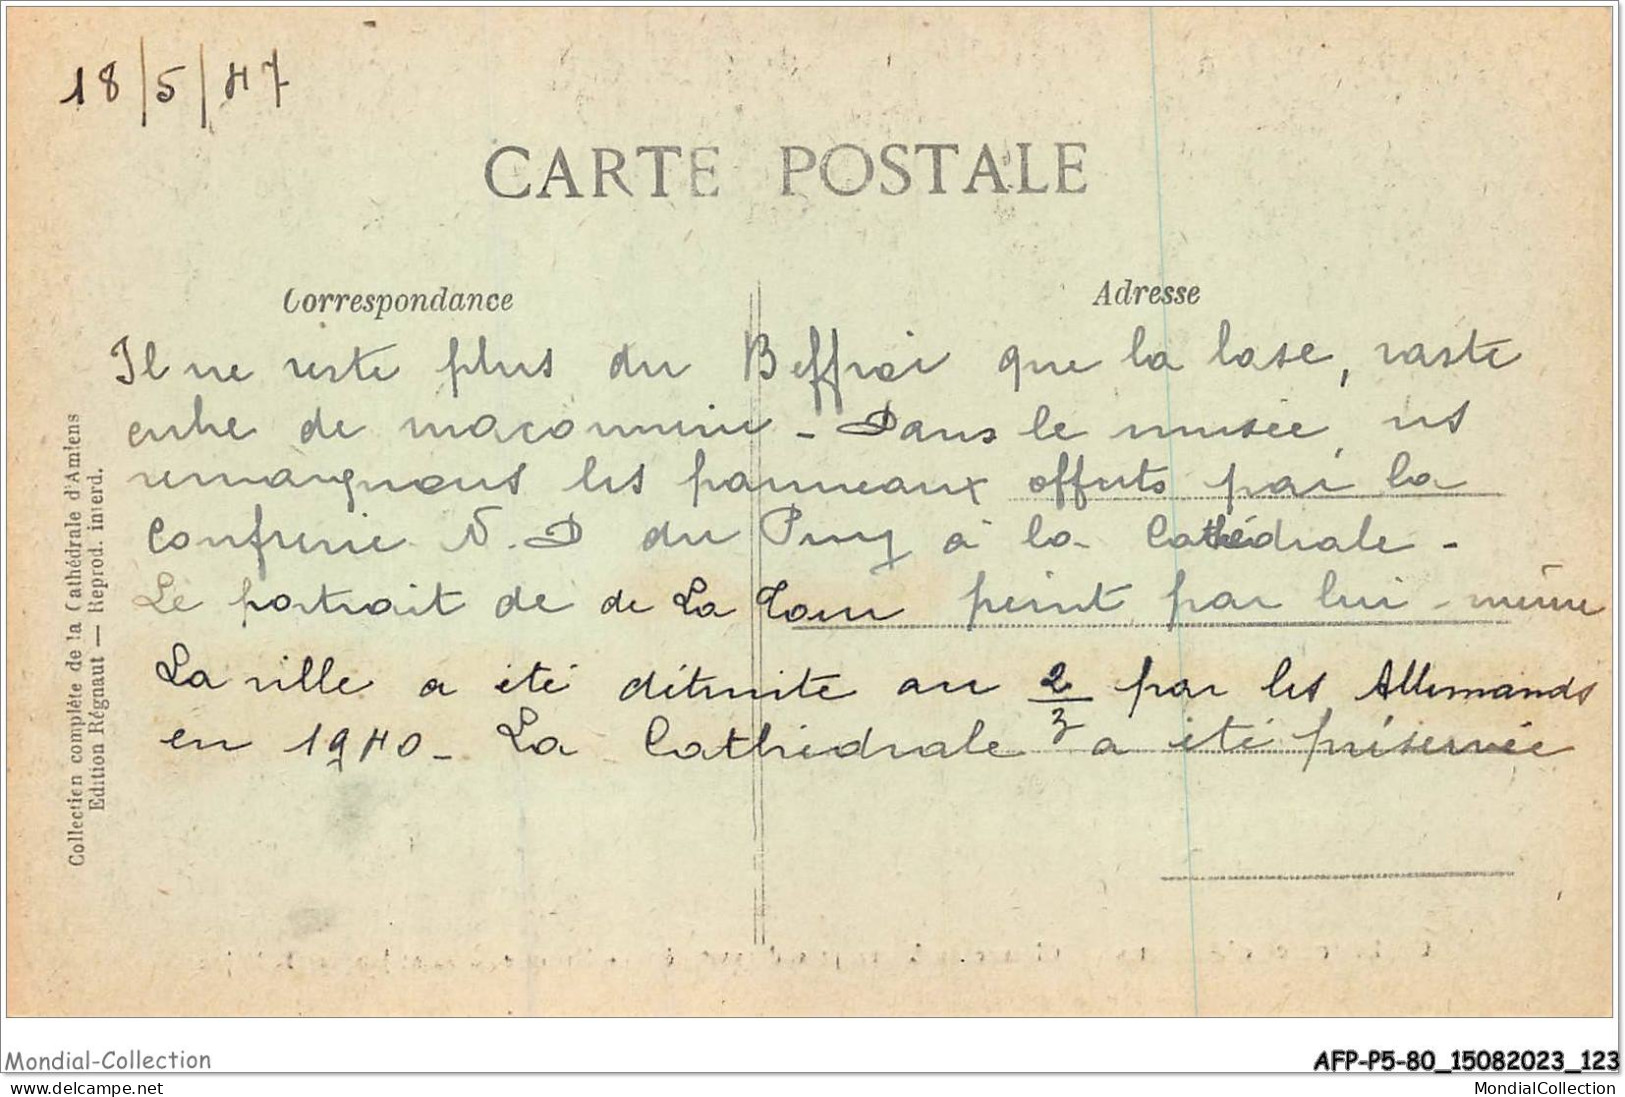 18/5/47
CARTE POSTALE
Correspondance
Adresse
Il ne reste plus du Beffroi que la base, vaste
cube de maconnerie - Dans le musée, ns
remarquons les panneaux offerts par la
Confrerie N. D du Puy à la Cathédrale -
Le portrait de de La Tour peint par lui-même
La ville a été détruite au 2/3 par les Allemands
en 1940 - La Cathédrale a été préservée
Collection complète de la Cathédrale d'Amiens
Edition Régnaut — Reprod. interd.
Mondial-Collection
AFP-P5-80_15082023_123
www.delcampe.net
MondialCollection